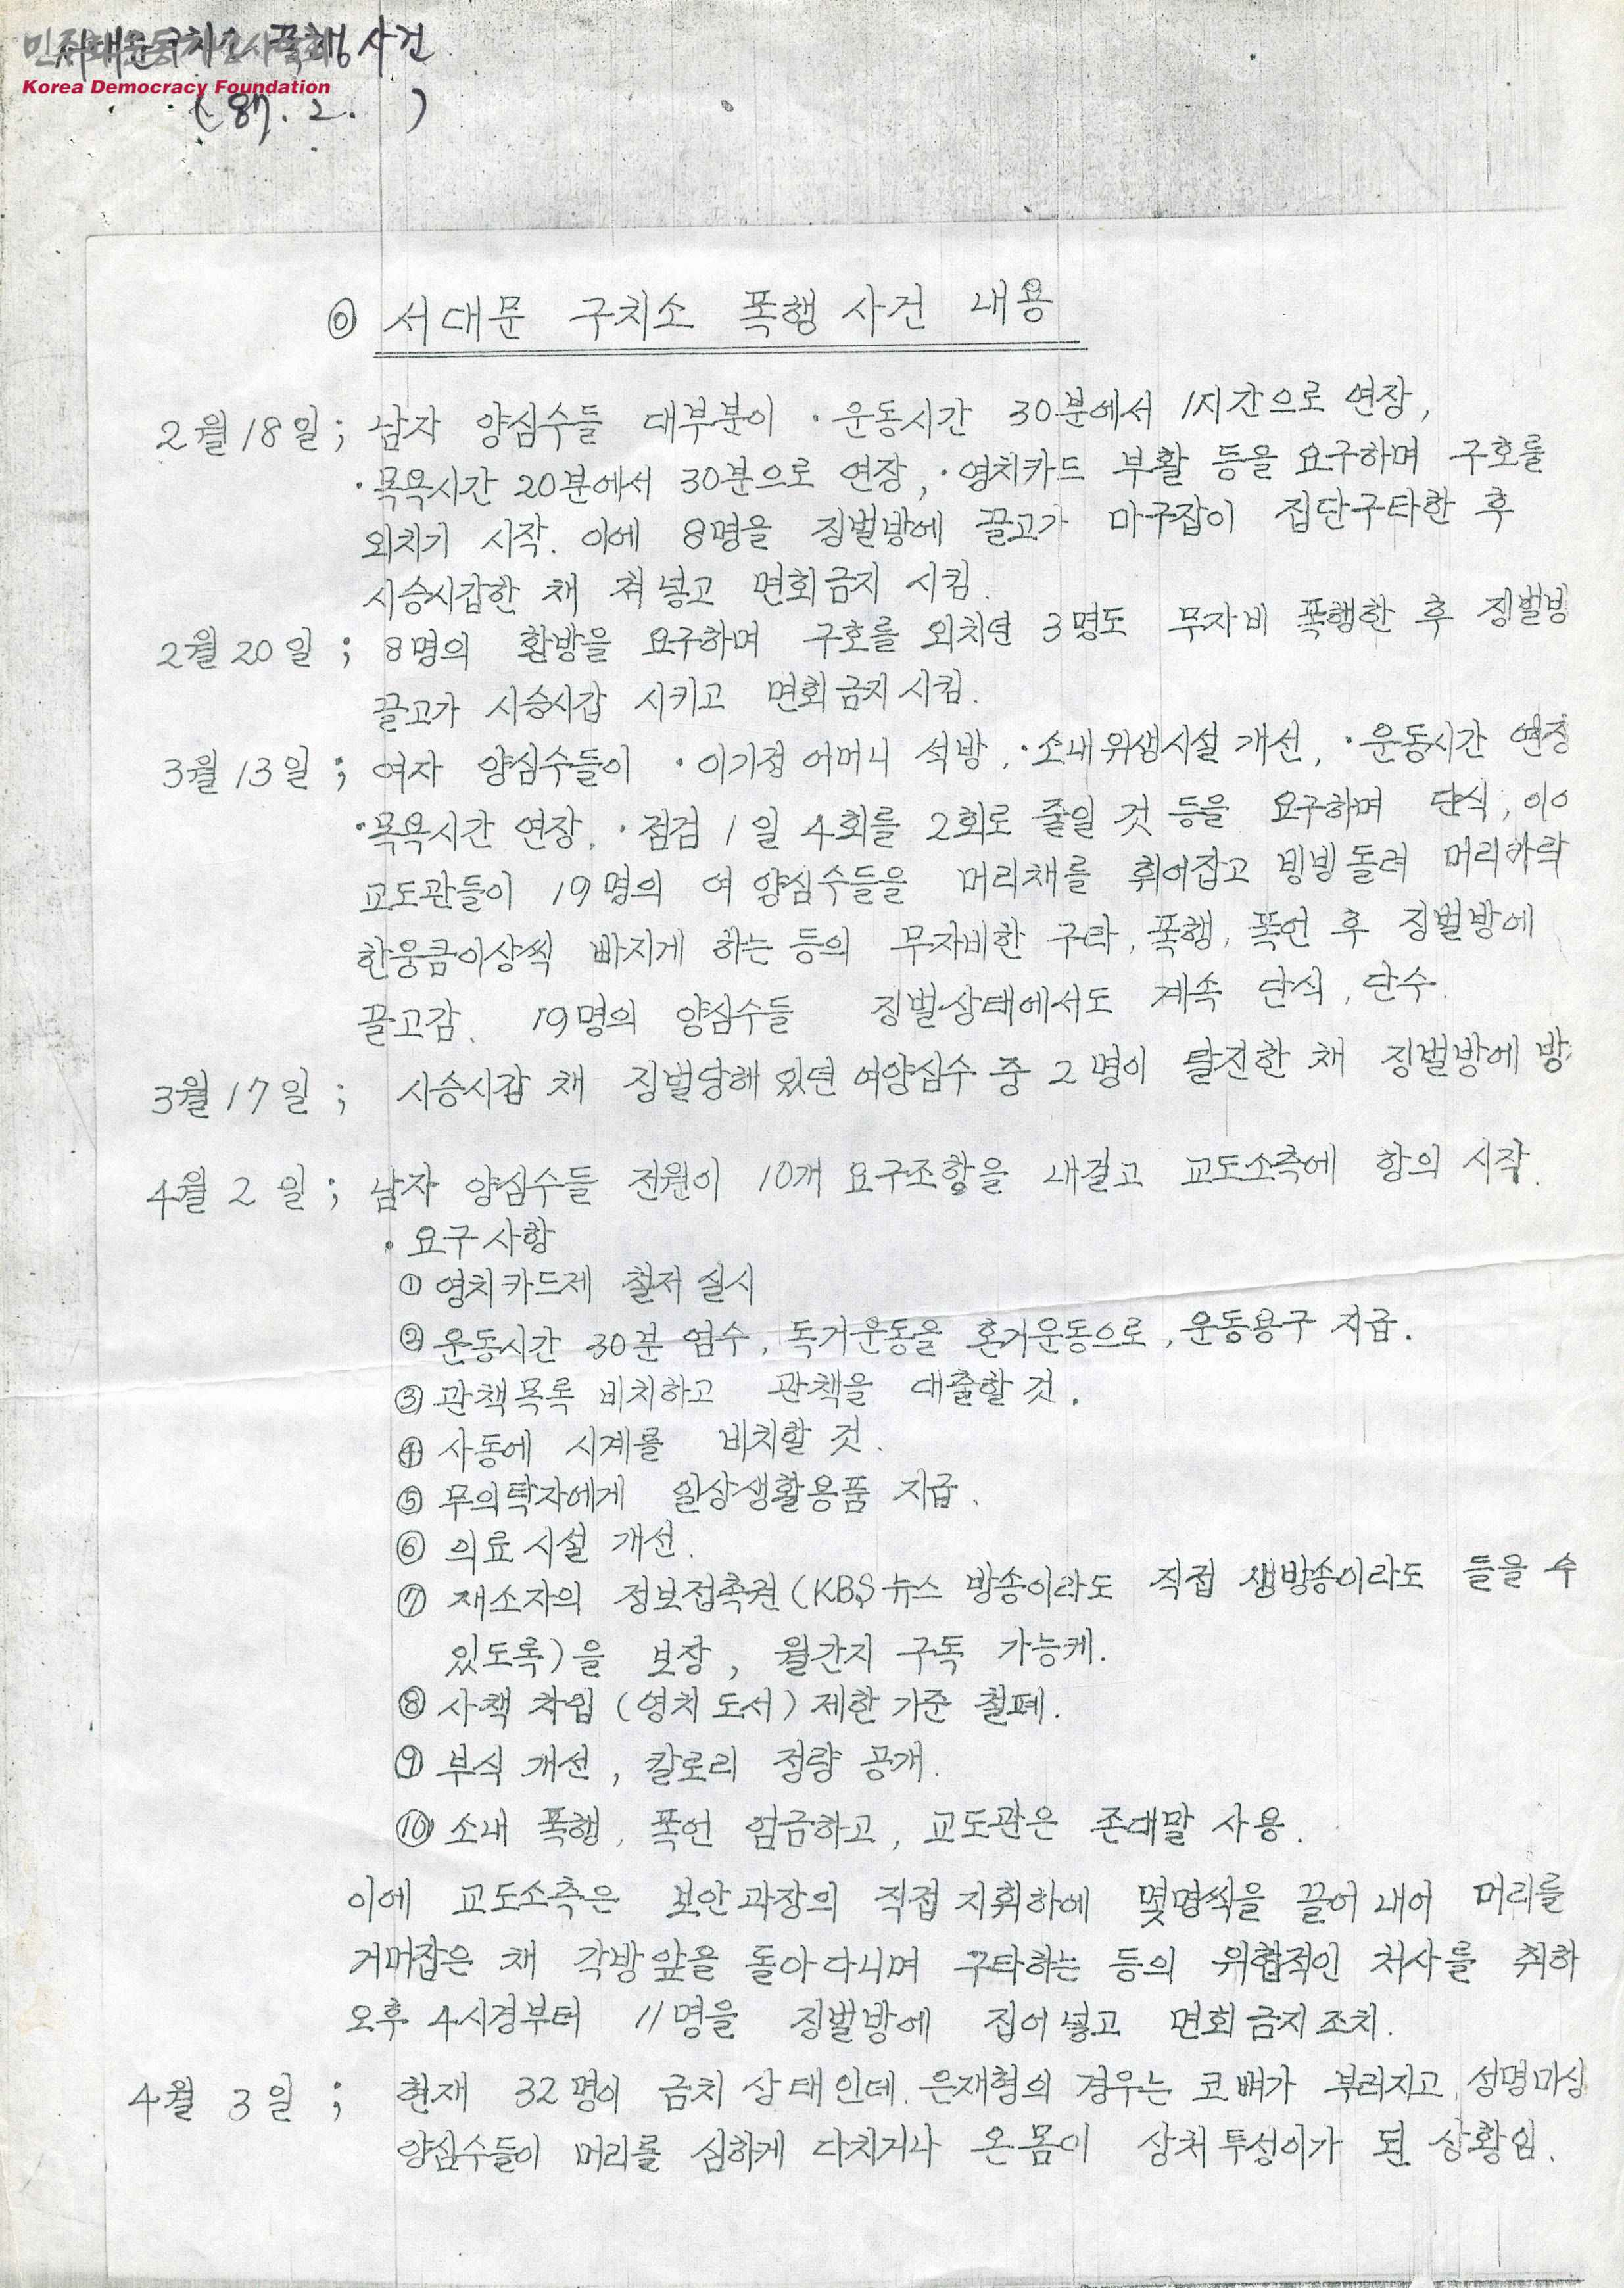 서대문구치소 폭행사건
Korea Democracy Foundation
(87. 2. )
◎ 서대문 구치소 폭행 사건 내용
2월 18일 ; 남자 양심수들 대부분이 · 운동시간 30분에서 1시간으로 연장,
· 목욕시간 20분에서 30분으로 연장, · 영치카드 부활 등을 요구하며 구호를
외치기 시작. 이에 8명을 징벌방에 끌고가 마구잡이 집단구타한 후
시승시갑한 채 쳐넣고 면회금지 시킴.
2월 20일 ; 8명의 환방을 요구하며 구호를 외치던 3명도 무자비 폭행한 후 징벌방
끌고가 시승시갑 시키고 면회금지 시킴.
3월 13일 ; 여자 양심수들이 · 이기정 어머니 석방, · 소내위생시설 개선, · 운동시간 연장
· 목욕시간 연장, · 점검 1일 4회를 2회로 줄일 것 등을 요구하며 단식,
교도관들이 19명의 여 양심수들을 머리채를 휘어잡고 빙빙돌려 머리카락
한웅큼이상씩 빠지게 하는 등의 무자비한 구타, 폭행, 폭언 후 징벌방에
끌고감. 19명의 양심수들 징벌상태에서도 계속 단식, 단수.
3월 17일 ; 시승시갑 채 징벌당해 있던 여양심수 중 2명이 탈진한 채 징벌방에
4월 2일 ; 남자 양심수들 전원이 10개 요구조항을 내걸고 교도소측에 항의 시작.
· 요구사항
① 영치카드제 철저 실시
② 운동시간 30분 엄수, 독거운동을 혼거운동으로, 운동용구 지급.
③ 관책목록 비치하고 관책을 대출할 것.
④ 사동에 시계를 비치할 것.
⑤ 무의탁자에게 일상생활용품 지급.
⑥ 의료시설 개선.
⑦ 재소자의 정보접촉권 (KBS 뉴스 방송이라도 직접 생방송이라도 들을 수
있도록)을 보장, 월간지 구독 가능케.
⑧ 사책 차입 (영치 도서) 제한 기준 철폐.
⑨ 부식 개선, 칼로리 정량 공개.
⑩ 소내 폭행, 폭언 엄금하고, 교도관은 존대말 사용.
이에 교도소측은 보안과장의 직접 지휘하에 몇명씩을 끌어내어 머리를
거머잡은 채 각방앞을 돌아다니며 구타하는 등의 위협적인 처사를 취하
오후 4시경부터 11명을 징벌방에 집어넣고 면회금지조치.
4월 3일 ; 현재 32명이 금치 상태인데. 은재형의 경우는 코뼈가 부러지고, 성명미상
양심수들이 머리를 심하게 다치거나 온몸이 상처투성이가 된 상황임.